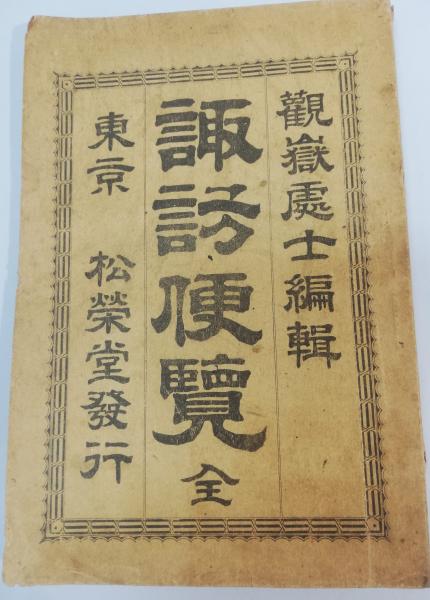 觀嶽處士編輯
諏訪便覽 全
東京 松榮堂發行